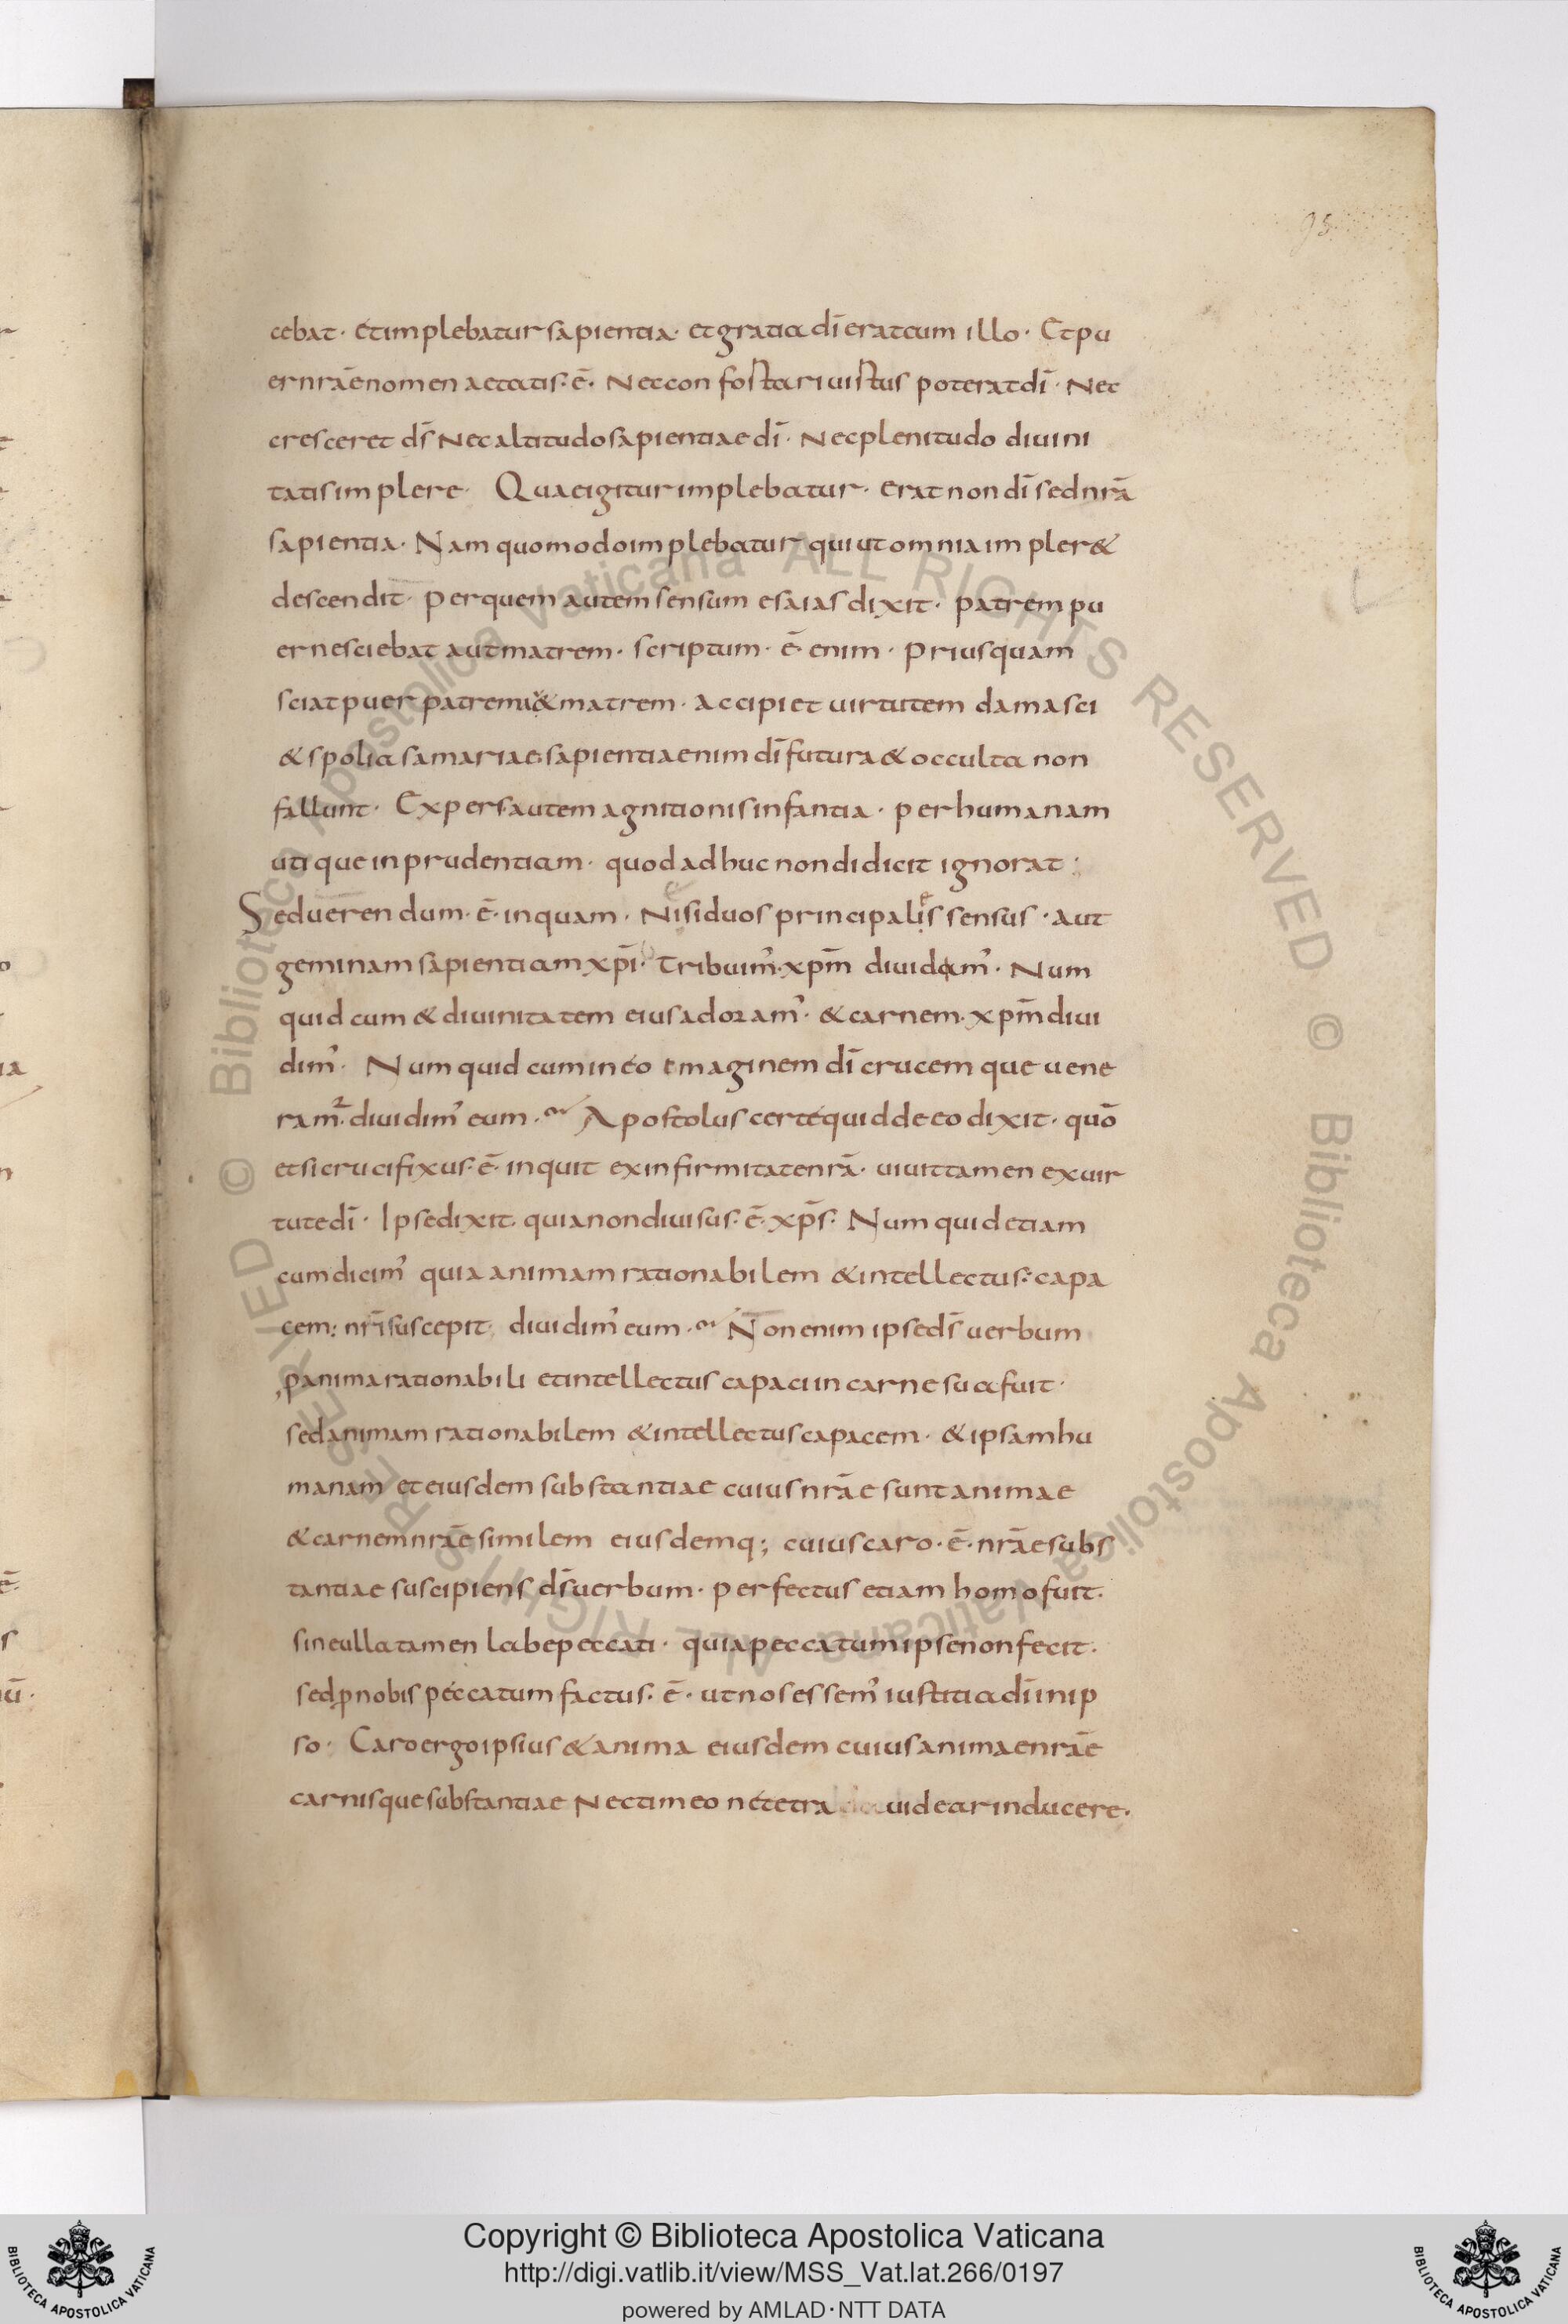 95
cebat · Et implebatur sapientia · et gratia dī erat cum illo · Et pu
er nrāe nomen aetatis · ē · Nec confortari uirtus poterat dī · Nec
cresceret ds̄ Nec altitudo sapientiae dī · Nec plenitudo diuini
tatis implere · Quae igitur implebatur · erat non dī sed nrā
sapientia · Nam quomodo implebatur qui ut omnia impler&
descendit · Per quem autem sensum esaias dixit · patrem pu
er nesciebat aut matrem · scriptum · ē · enim · Priusquam
sciat puer patrem & matrem · accipiet uirtutem damasci
& spolia samariae sapientia enim dī futura & occulta non
fallunt · Expers autem agnitionis infantia · per humanam
utique inprudentiam · quod adhuc non didicit ignorat :
Sed uerendum · ē · inquam · Ni si duos principales sensus · aut
geminam sapientiam xpī · tribuim' · xpm̄ diuidam' · Num
quid cum & diuinitatem eius adoram' · & carnem · xpm̄ diui
dim' · Numquid cum in eo imaginem dī crucemque uene
ramr · diuidim' eum · Apostolus certe qui de eo dixit · quō
et si crucifixus · ē · inquit ex infirmitate nrā · uiuit tamen ex uir
tute dī · Ipse dixit · quia non diuisus · ē · xps̄ · Numquid etiam
cum dicim' quia animam rationabilem & intellectus · capa
cem : nrī suscepit · diuidim' eum · Non enim ipse ds̄ uerbum
p anima rationabili et intellectus capaci in carne sua fuit ·
sed animam rationabilem & intellectus capacem · & ipsam hu
manam et eiusdem substantiae cuius nrāe sunt animae
& carnem nrāe similem eiusdemq; cuius caro · ē · nrāe subs
tantiae suscipiens ds̄ uerbum · perfectus etiam homo fuit ·
sine ulla tamen labe peccati · quia peccatum ipse non fecit ·
sed p nobis peccatum factus · ē · ut nos essem' iustitia dī in ip
so · Caro ergo ipsius & anima eiusdem cuius anima e nrāe
carnisque substantiae Nec timeo ne tetra uidear inducere ·
Copyright © Biblioteca Apostolica Vaticana
http://digi.vatlib.it/view/MSS_Vat.lat.266/0197
powered by AMLAD · NTT DATA
BIBLIOTECA APOSTOLICA VATICANA
BIBLIOTECA APOSTOLICA VATICANA
© Biblioteca Apostolica Vaticana ALL RIGHTS RESERVED © Biblioteca Apostolica Vaticana ALL RIGHTS RESERVED